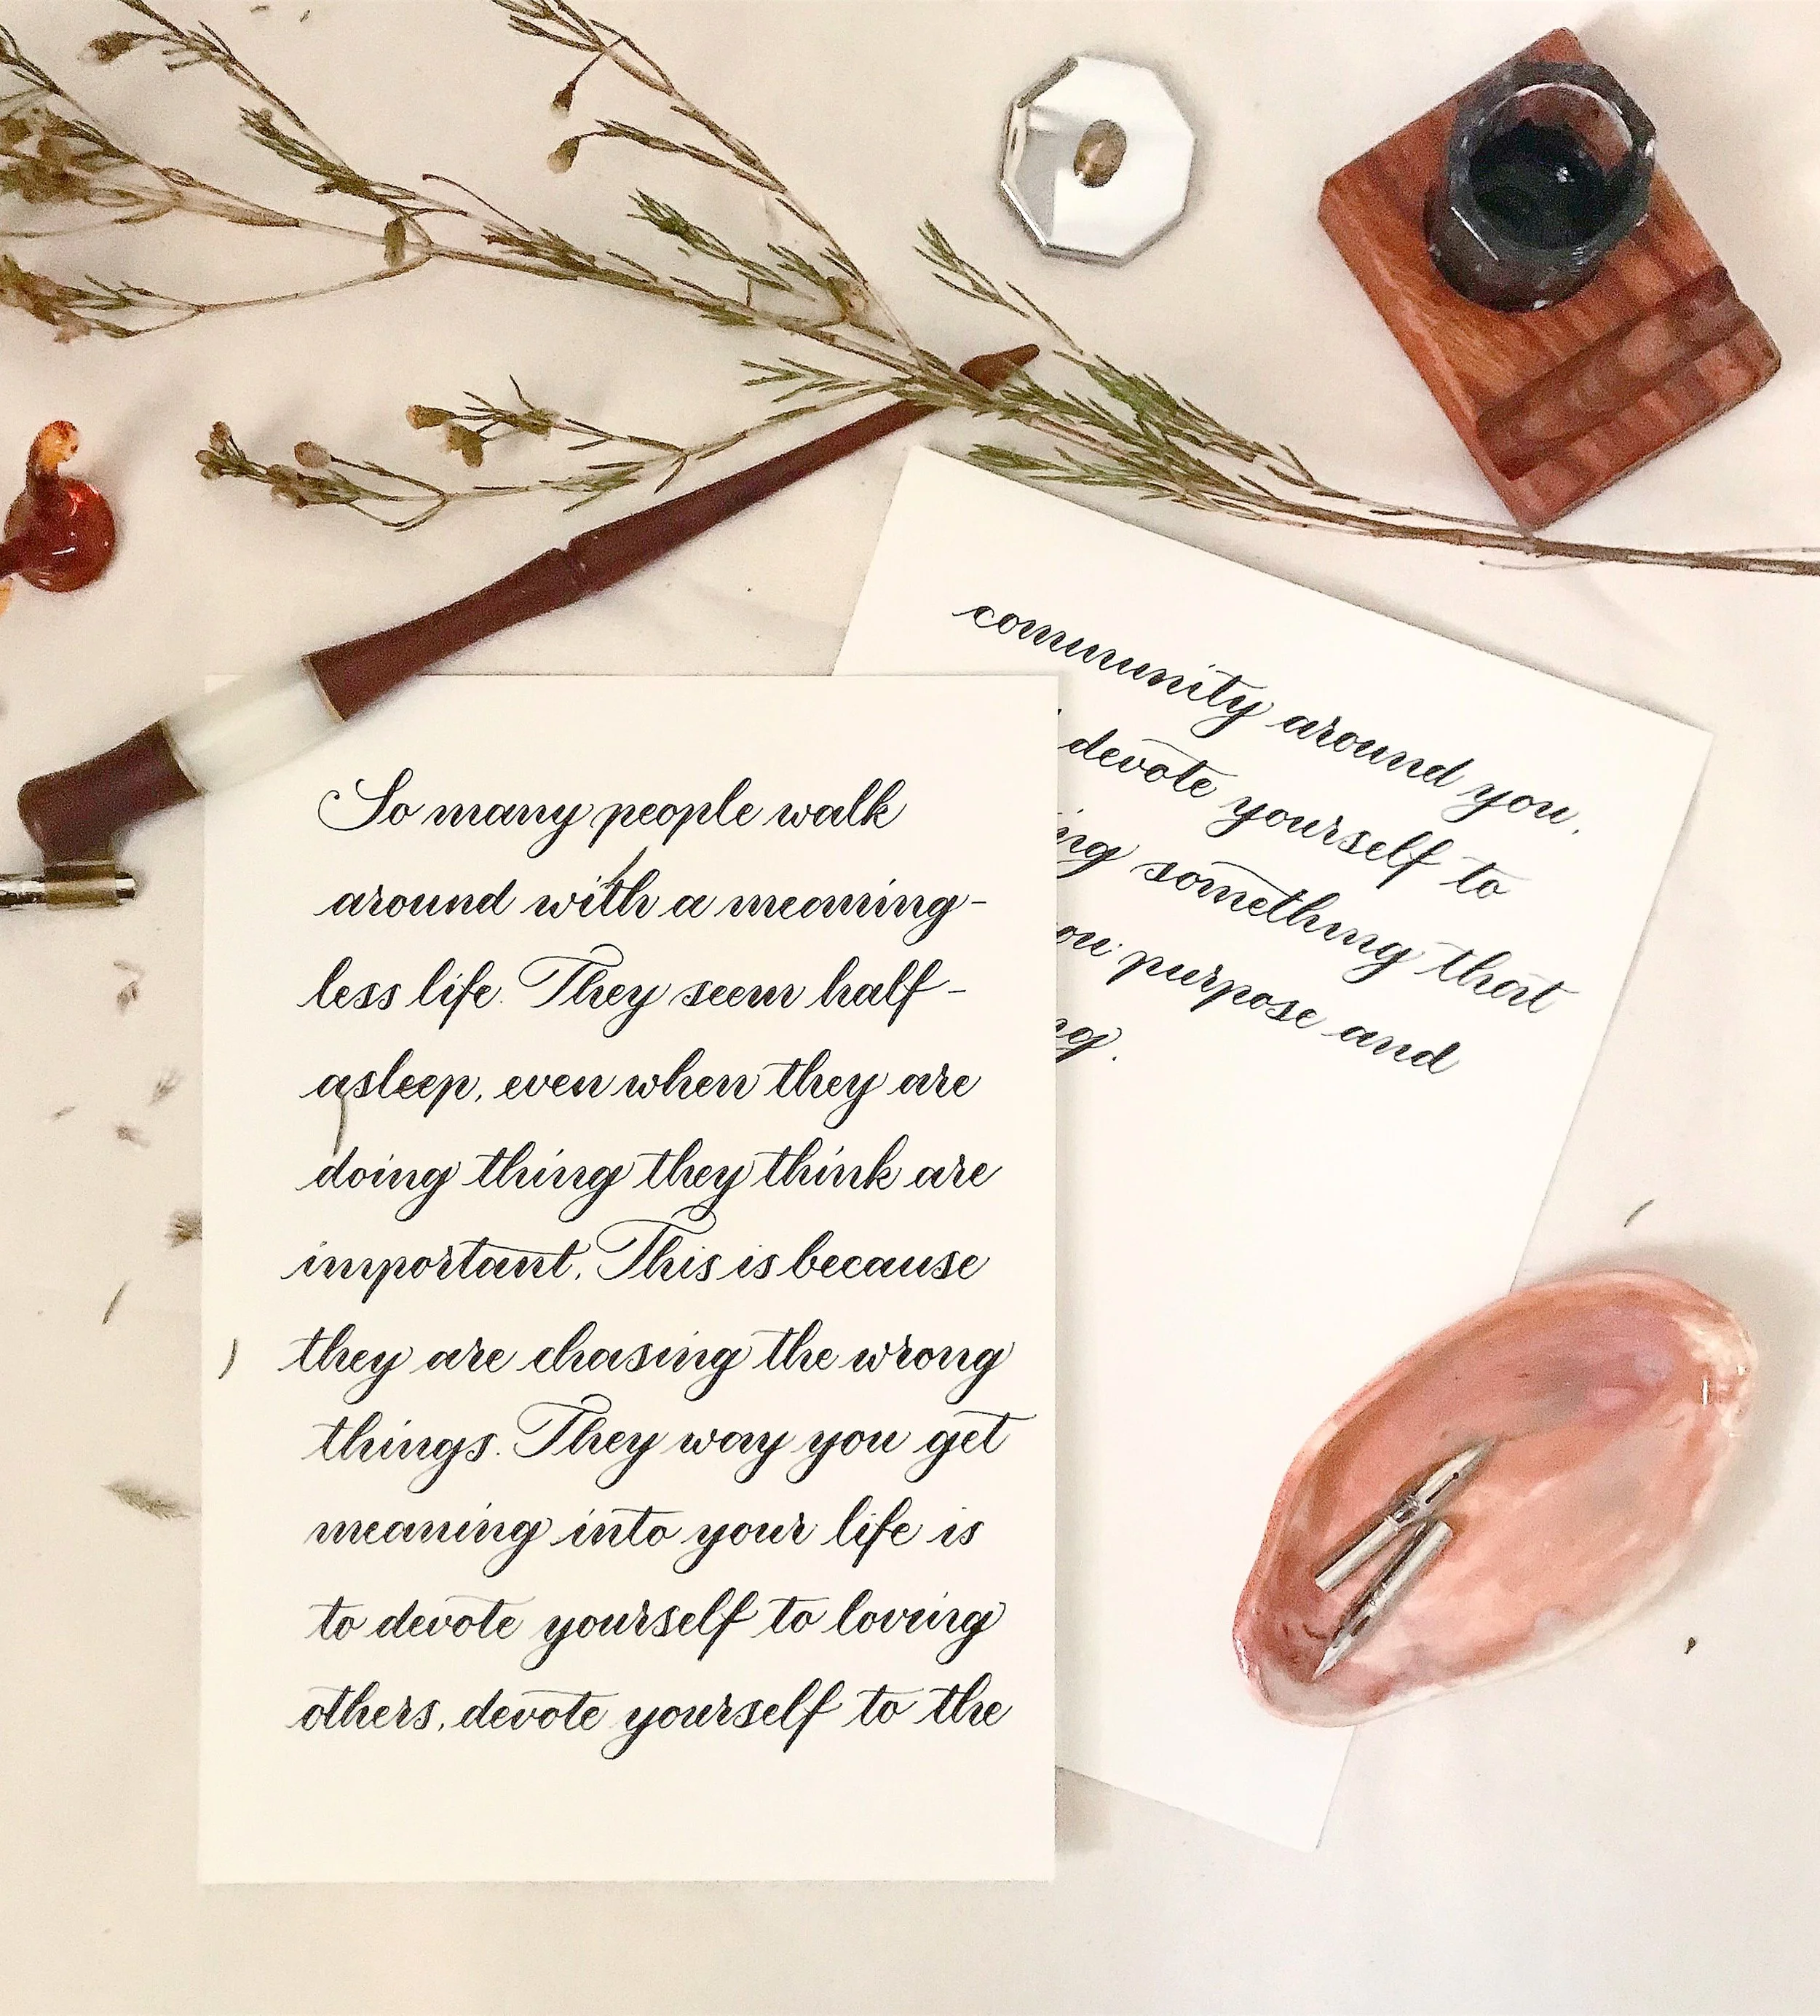 So many people walk
around with a meaning-
less life. They seem half-
asleep, even when they are
doing thing they think are
important. This is because
they are chasing the wrong
things. They way you get
meaning into your life is
to devote yourself to loving
others, devote yourself to the
community around you,
devote yourself to
something that
purpose and